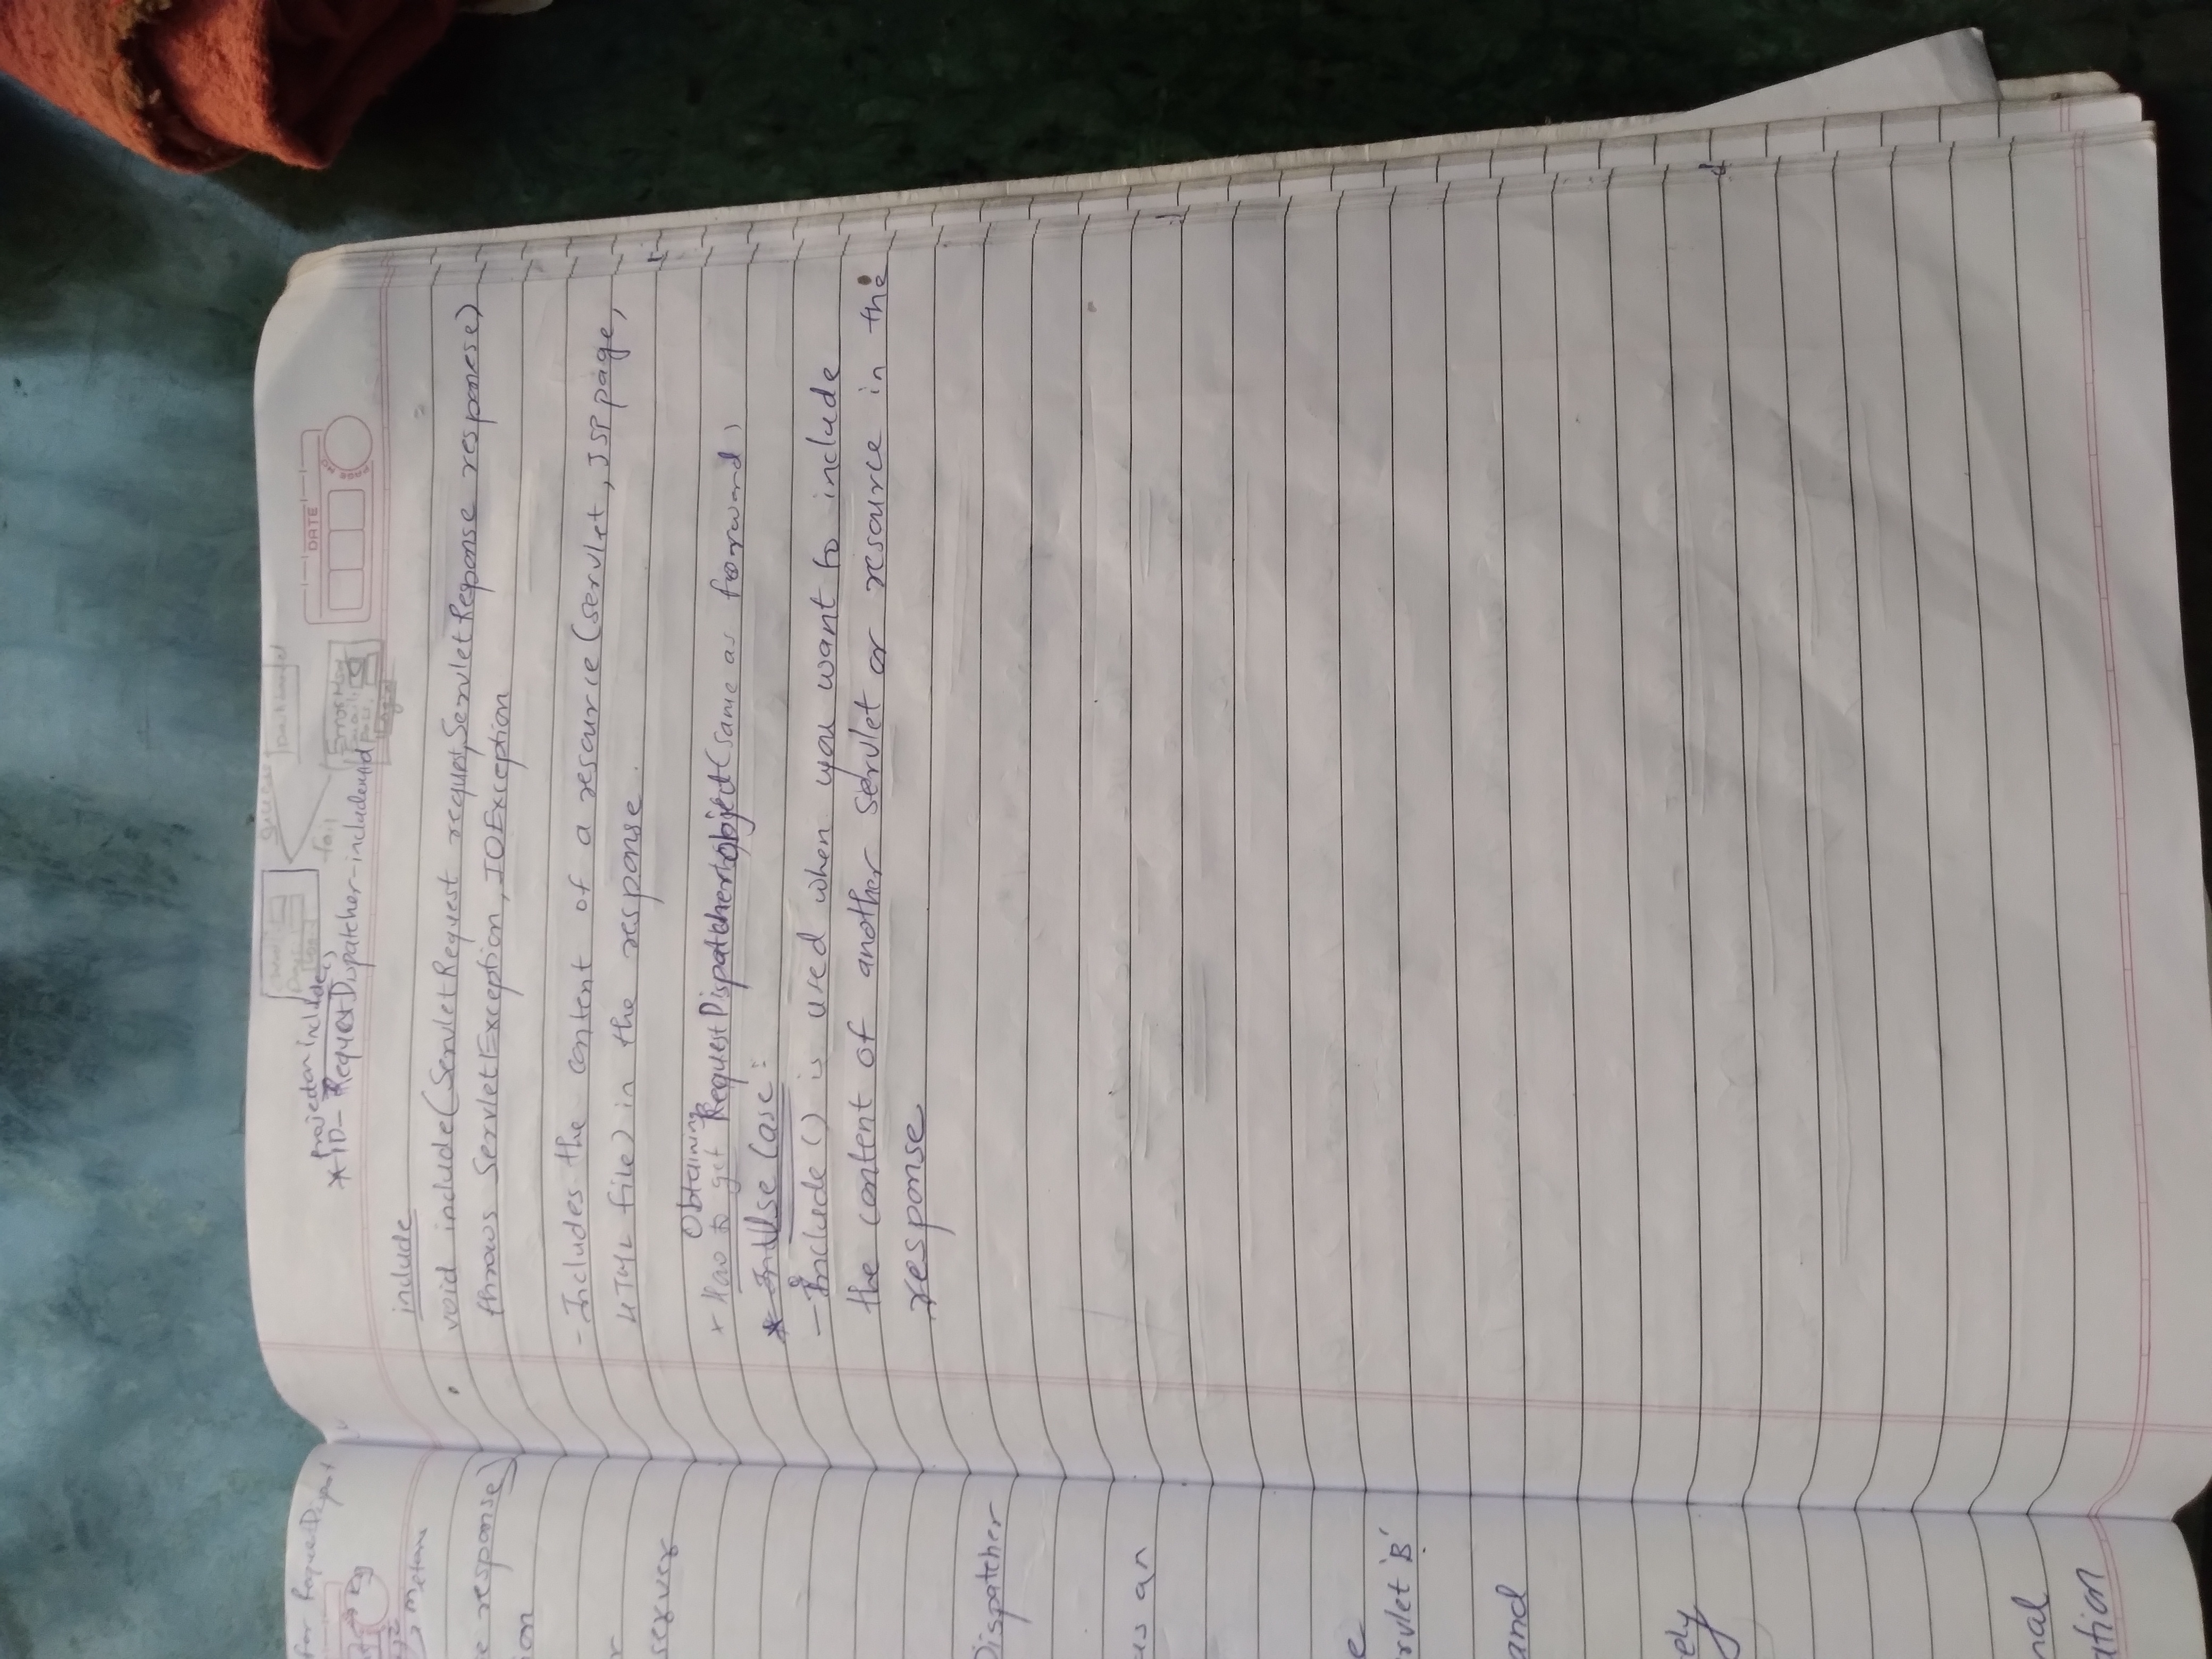 for RequestDispat
e response)
ion
r
server
Dispatcher
us an
e
rvlet 'B'
and
ely
nal
ation
success
fail
Error Msg
Login
DATE
PAGE NO
project on include()
* ID- RequestDispatcher-include
include
void include(ServletRequest request, ServletReponse responese)
throws ServletException, IOException
- Includes the content of a resource (servlet, JSP page,
HTML file) in the response.
Obtaining
+ How to get RequestDispatcher object (same as forward)
* Use Case:
- include() is used when you want to include
the content of another servlet or resource in the
response